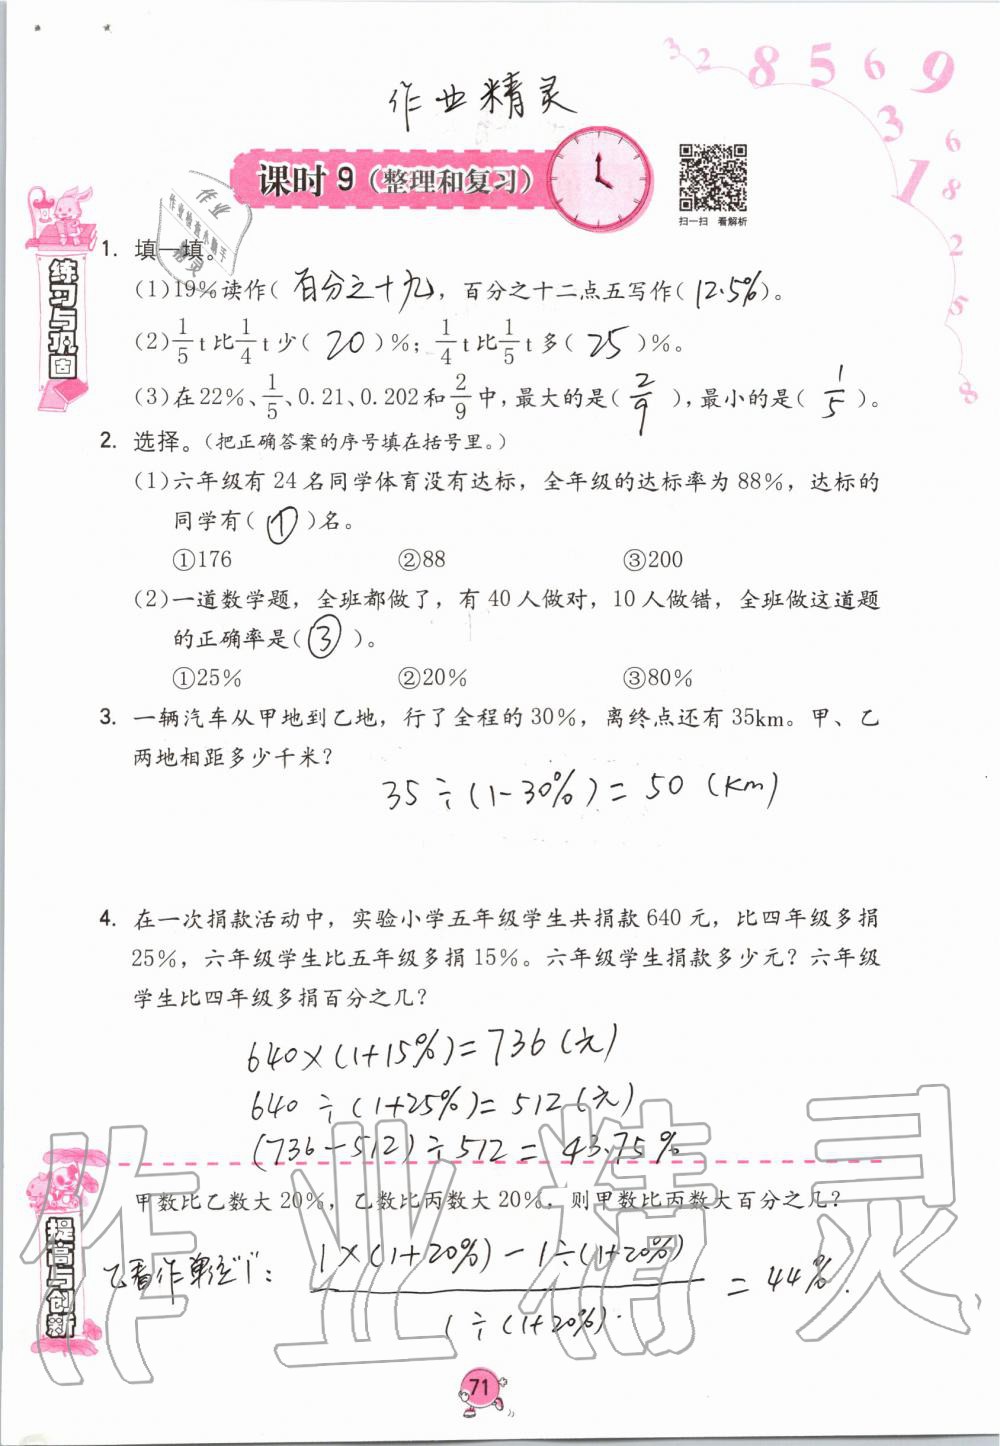 3 2 8 5 6 9
3 1 6 8 2 5 8
作业精灵
课时 9（整理和复习）
扫一扫 看解析
作业
作业检查小助手
精灵
练习与巩固
1. 填一填。
(1)19%读作( 百分之十九 )，百分之十二点五写作( 12.5% )。
(2) 1/5 t比 1/4 t少( 20 )%；1/4 t比 1/5 t多( 25 )%。
(3)在22%、1/5、0.21、0.202和 2/9 中，最大的是( 2/9 )，最小的是( 1/5 )。
2. 选择。（把正确答案的序号填在括号里。）
(1)六年级有24名同学体育没有达标，全年级的达标率为88%，达标的
同学有( ① )名。
①176 ②88 ③200
(2)一道数学题，全班都做了，有40人做对，10人做错，全班做这道题
的正确率是( ③ )。
①25% ②20% ③80%
3. 一辆汽车从甲地到乙地，行了全程的30%，离终点还有35km。甲、乙
两地相距多少千米？
35÷(1-30%)=50(km)
4. 在一次捐款活动中，实验小学五年级学生共捐款640元，比四年级多捐
25%，六年级学生比五年级多捐15%。六年级学生捐款多少元？六年级
学生比四年级多捐百分之几？
640×(1+15%)=736(元)
640÷(1+25%)=512(元)
(736-512)÷512=43.75%
提高与创新
甲数比乙数大20%，乙数比丙数大20%，则甲数比丙数大百分之几？
乙看作单位"1"：
1×(1+20%)-1÷(1+20%)
1÷(1+20%)
=44%.
作业精灵
71